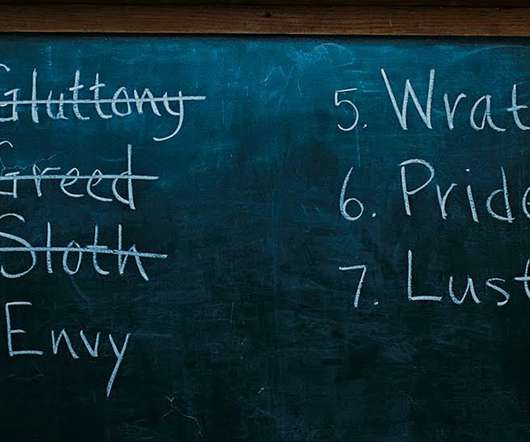 Gluttony
Greed
Sloth
Envy
5. Wrat
6. Pride
7. Lust